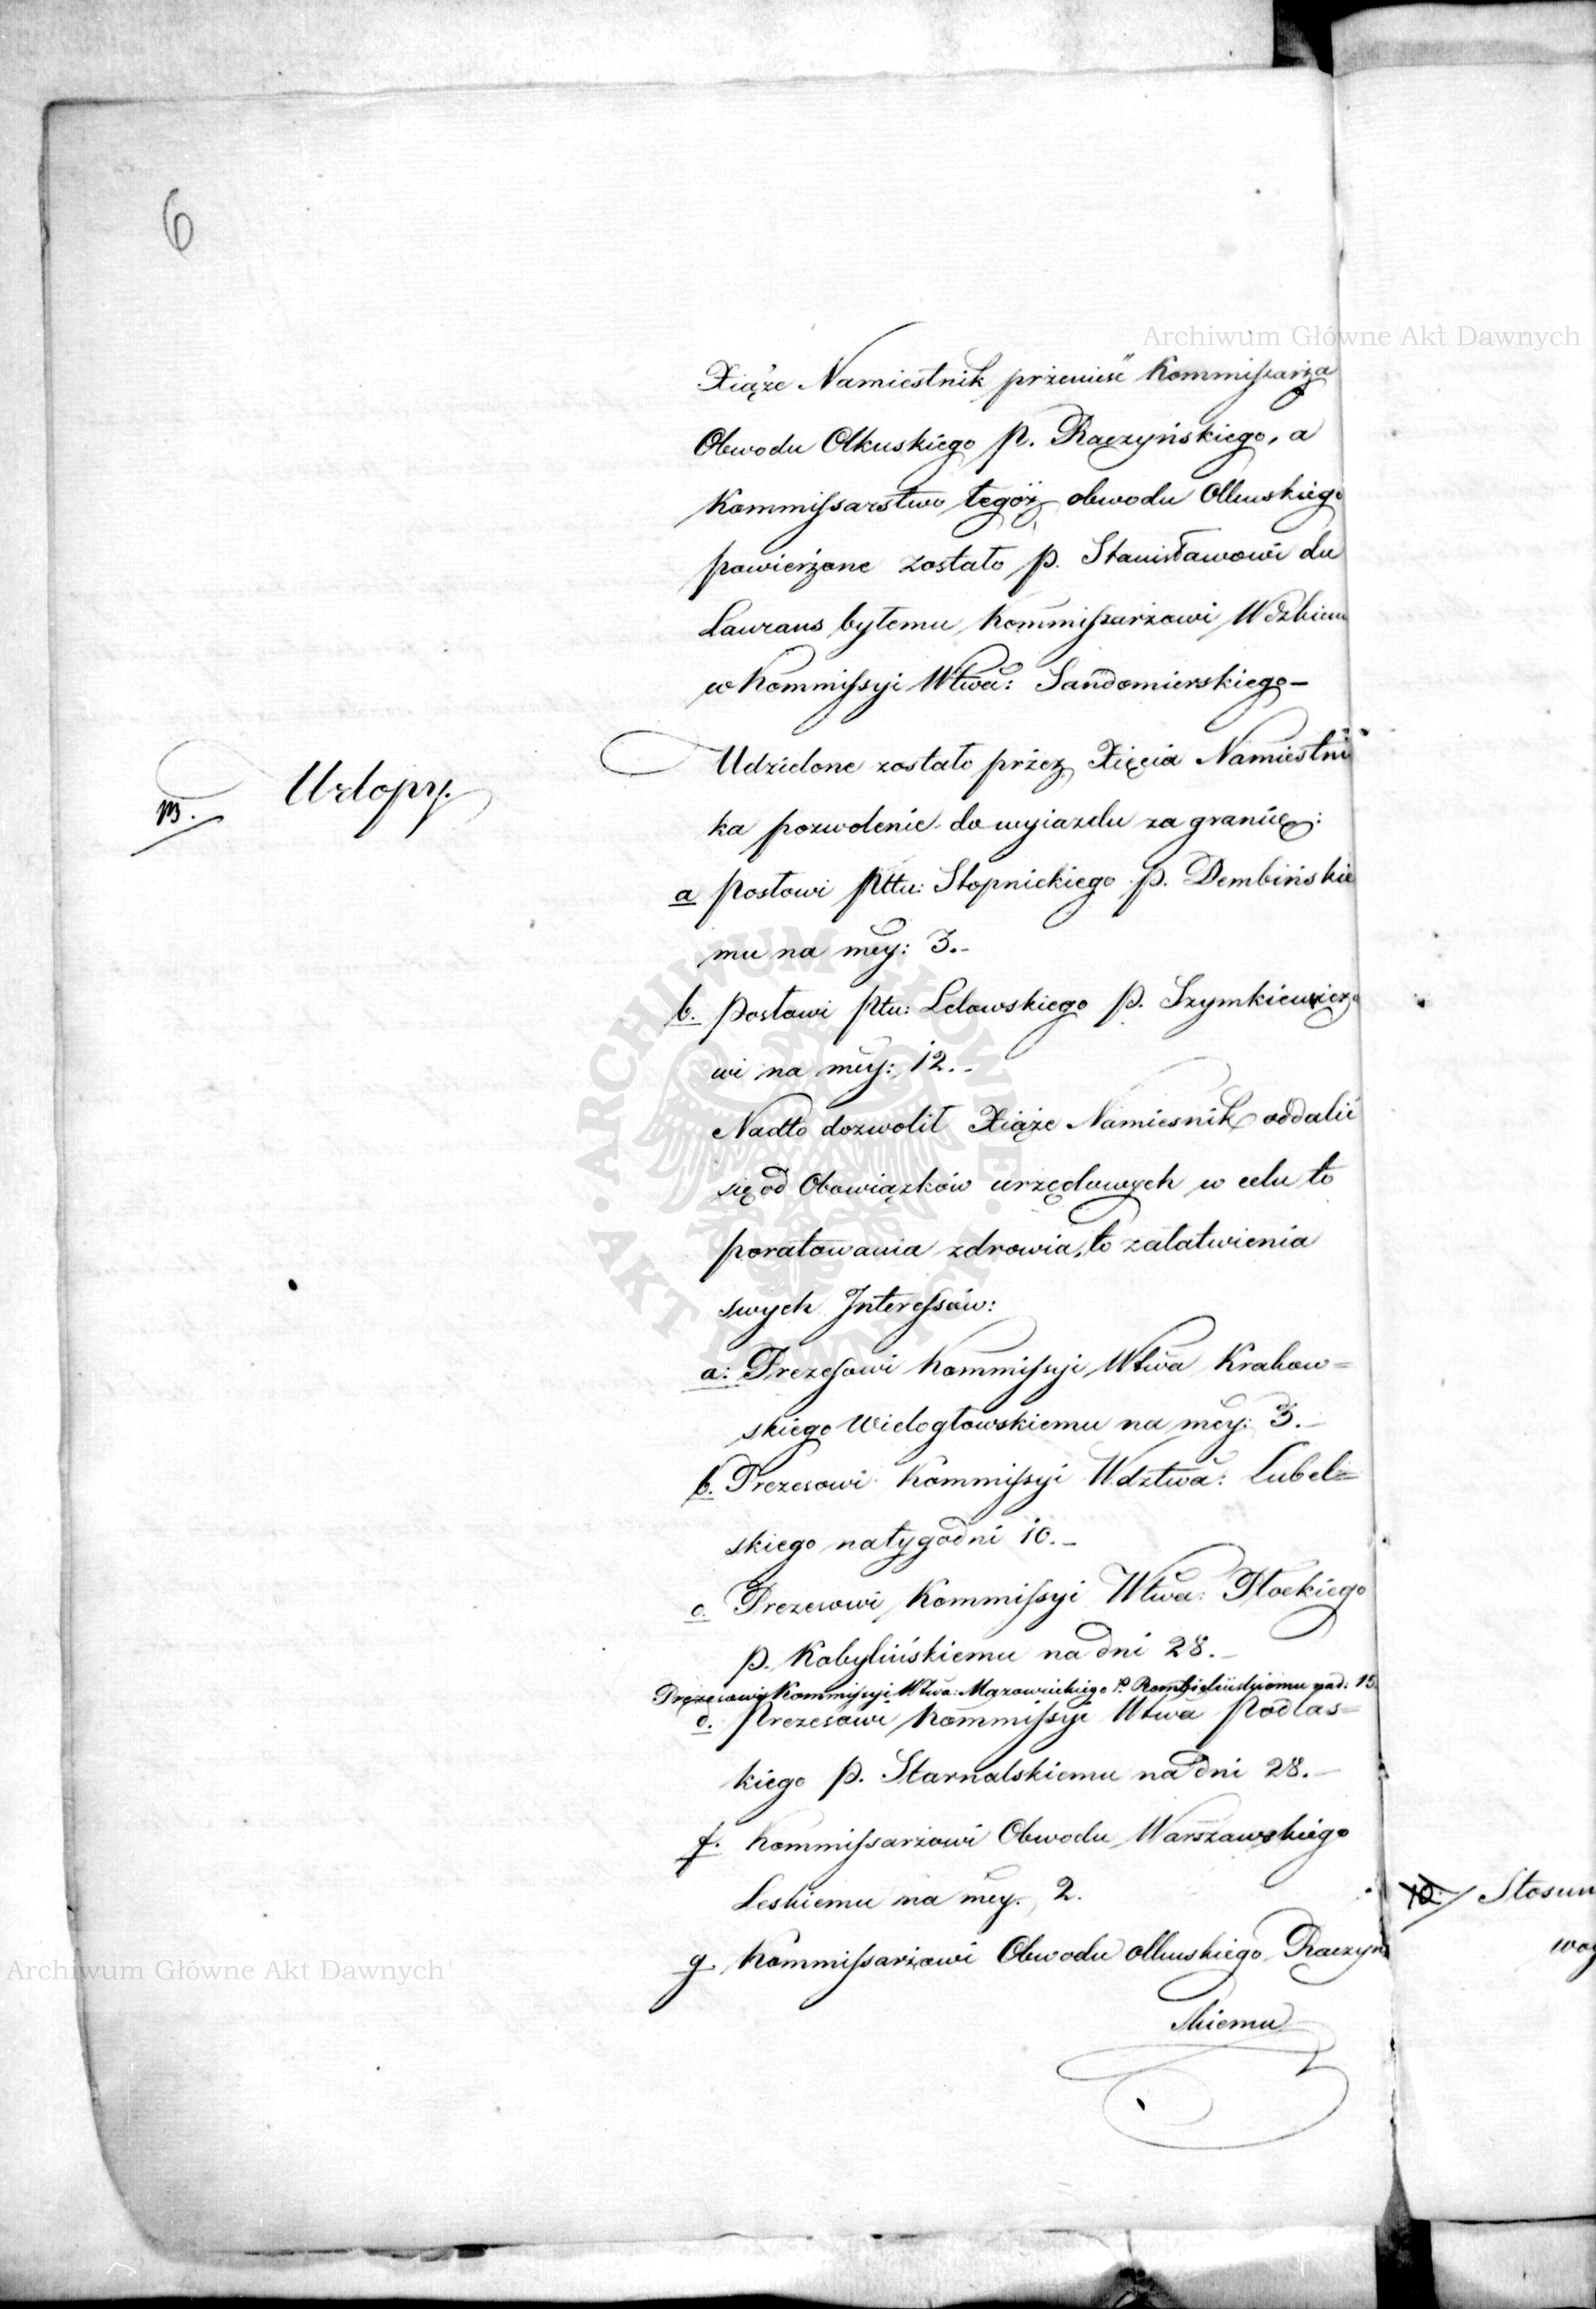 6
Archiwum Główne Akt Dawnych
Xiąże Namiestnik przenieść Kommissarza
Obwodu Olkuskiego p. Raczyńskiego, a
Kommissarstwo tegoż obwodu Olkuskiego
powierzone zostało p. Stanisławowi du
Laurans byłemu Kommissarzowi
w Kommissyi Wtwa: Sandomierskiego –
Urlopy.
Udzielone zostało przez Xięcia Namiestni
ka pozwolenie do wyiazdu za granicę:
a Posłowi Pttu: Stopnickiego p. Dembińskie
mu na mcy: 3.-
b. Posłowi Ptu: Lelowskiego p. Szymkiewiczo
wi na mcy: 12.-
Nadto dozwolił Xiąże Namiesnik oddalić
się od Obowiązków urzędowych w celu to
poratowania zdrowia, to załatwienia
swych Interessów:
a: Prezesowi Kommissyi Wtwa Krakow=
skiego Wielogłowskiemu na mcy: 3.-
b. Prezesowi Kommissyi Wdztwa: Lubel=
skiego na tygodni 10.-
c. Prezesowi Kommissyi Wtwa: Płockiego
p. Kobylińskiemu na dni 28.-
Prezesowi Kommissyi Wtwa: Mazowieckiego P. Rembielińskiemu na d: 15.
d. Prezesowi Kommissyi Wtwa Podlas=
kiego p. Starnalskiemu na dni 28.-
f. Kommissarzowi Obwodu Warszawskiego
Leskiemu na mcy. 2.
g. Kommissarzowi Obwodu olkuskiego Raczyń
skiemu
Archiwum Główne Akt Dawnych
10. Stosun
ARCHIWUM GŁÓWNE AKT DAWNYCH